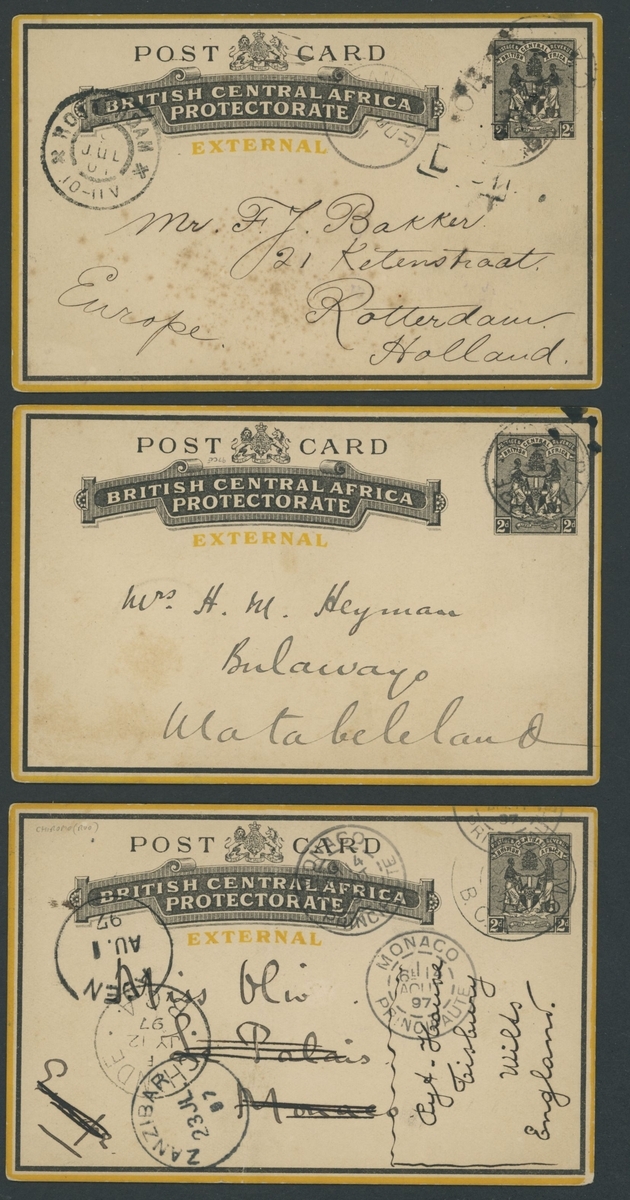 POST CARD
BRITISH CENTRAL AFRICA
PROTECTORATE
EXTERNAL
BRITISH CENTRAL AFRICA
2d
ROTTERDAM
JUL
01
10-11V
Mr. F. J. Bakker
21 Ketenstraat.
Rotterdam.
Holland.
Europe.
POST CARD
BRITISH CENTRAL AFRICA
PROTECTORATE
EXTERNAL
BRITISH CENTRAL AFRICA
2d 2d
Mrs H. M. Heyman
Bulawayo
Matabeleland
POST CARD
BRITISH CENTRAL AFRICA
PROTECTORATE
EXTERNAL
2d 2d
B.C.
97
AU. 1
Miss Olive
Palais
Monaco
MONACO
AOU
97
PRINCIPAUTE
CHINDE
JY 12
97
ZANZIBAR
23 JL
97
Pyt-House
Tisbury
Wilts
England.